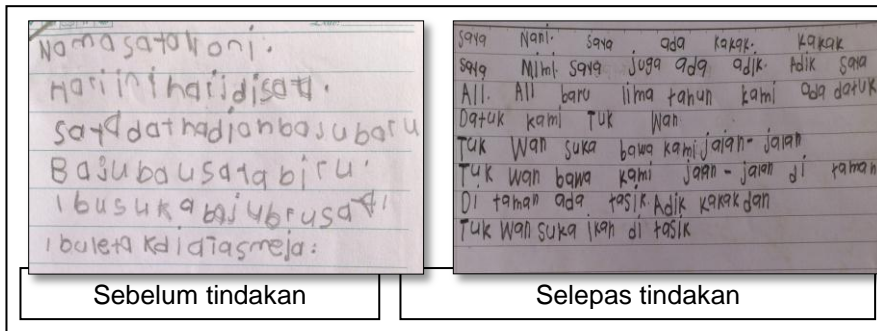 Nama satah oni.
Hari ini hari jdi sata.
Sata dat hadian basu baru
Basu bau sata biru.
Ibu suka baju bru sata
Ibu leta kdi atas meja.
saya Nani. saya ada kakak. kakak
saya Mimi. saya juga ada adik. Adik saya
Ali. Ali baru lima tahun kami ada datuk
Datuk kami Tuk Wan
Tuk Wan suka bawa kami jalan-jalan
Tuk wan bawa kami jaan-jalan di taman
Di taman ada tasik. Adik kakak dan
Tuk Wan suka ikan di tasik
Sebelum tindakan
Selepas tindakan